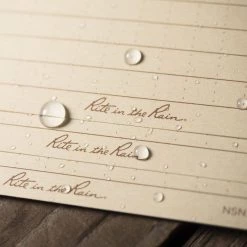 Rite in the Rain
Rite in the Rain
Rite in the Rain
NSN